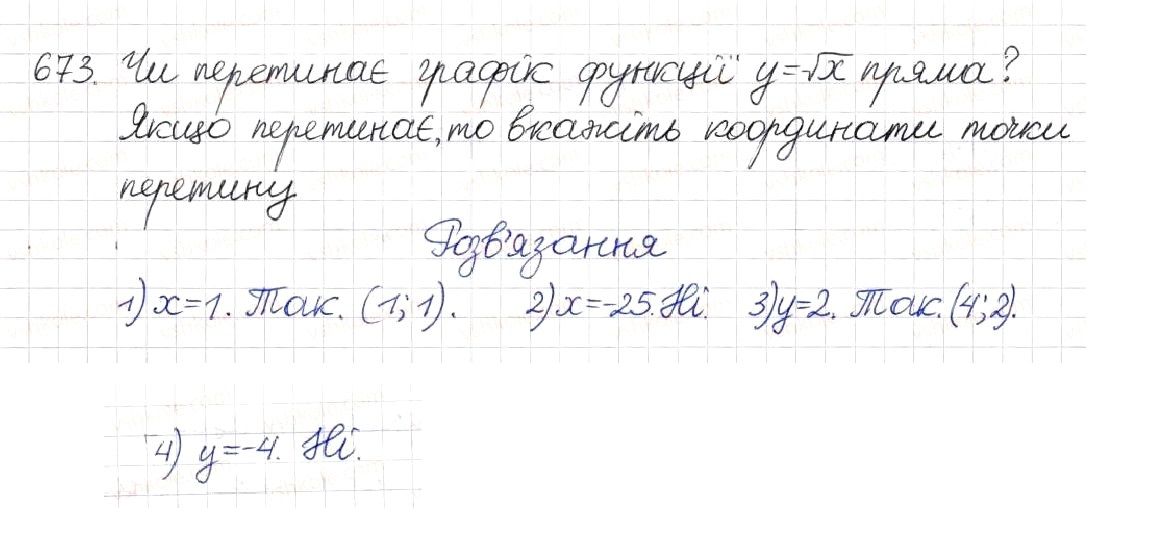 673. Чи перетинає графік функції y=√x пряма?
Якщо перетинає, то вкажіть координати точки
перетину
Розв'язання
1) x=1. Так. (1; 1). 2) x=-25. Ні. 3) y=2. Так. (4; 2).
4) y=-4. Ні.